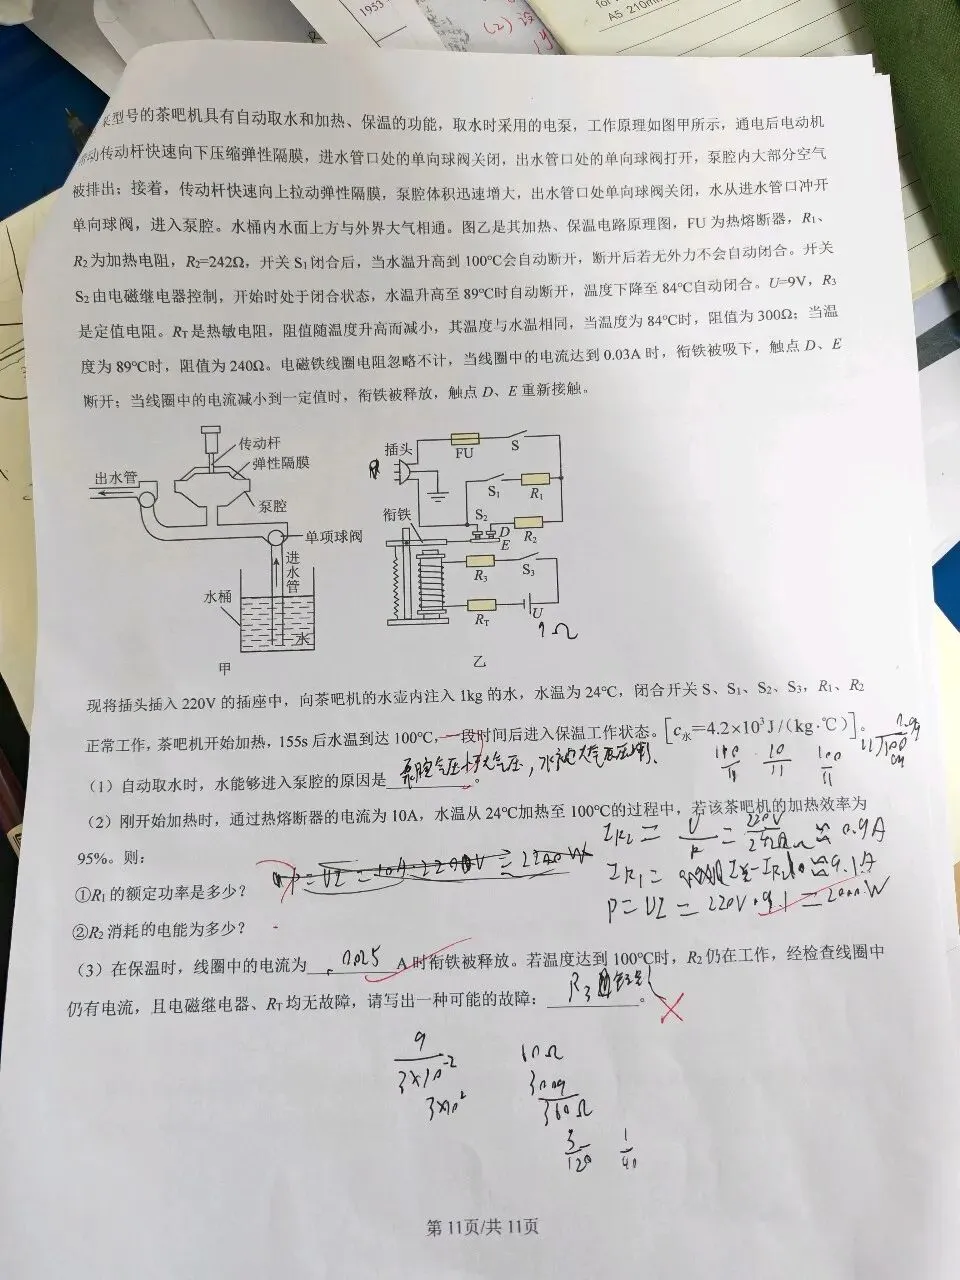 1953
(2)
A5 210m
型号的茶吧机具有自动取水和加热、保温的功能，取水时采用的电泵，工作原理如图甲所示，通电后电动机
传动杆快速向下压缩弹性隔膜，进水管口处的单向球阀关闭，出水管口处的单向球阀打开，泵腔内大部分空气
被排出；接着，传动杆快速向上拉动弹性隔膜，泵腔体积迅速增大，出水管口处单向球阀关闭，水从进水管口冲开
单向球阀，进入泵腔。水桶内水面上方与外界大气相通。图乙是其加热、保温电路原理图，FU 为热熔断器，R₁、
R₂为加热电阻，R₂=242Ω，开关 S₁闭合后，当水温升高到 100℃会自动断开，断开后若无外力不会自动闭合。开关
S₂由电磁继电器控制，开始时处于闭合状态，水温升高至 89℃时自动断开，温度下降至 84℃自动闭合。U=9V，R₃
是定值电阻。R_T是热敏电阻，阻值随温度升高而减小，其温度与水温相同，当温度为 84℃时，阻值为 300Ω；当温
度为 89℃时，阻值为 240Ω。电磁铁线圈电阻忽略不计，当线圈中的电流达到 0.03A 时，衔铁被吸下，触点 D、E
断开；当线圈中的电流减小到一定值时，衔铁被释放，触点 D、E 重新接触。
传动杆
弹性隔膜
出水管
泵腔
单项球阀
进水管
水桶
水
甲
插头
FU
S
S₁
R₁
衔铁
S₂
D
E
R₂
R₃
S₃
R_T
U
乙
现将插头插入 220V 的插座中，向茶吧机的水壶内注入 1kg 的水，水温为 24℃，闭合开关 S、S₁、S₂、S₃，R₁、R₂
正常工作，茶吧机开始加热，155s 后水温到达 100℃，一段时间后进入保温工作状态。[c水=4.2×10³J/（kg·℃）]。
100/11 10/11 100/11
（1）自动取水时，水能够进入泵腔的原因是 泵腔气压小于大气压，水被大气压压到 。
（2）刚开始加热时，通过热熔断器的电流为 10A，水温从 24℃加热至 100℃的过程中，若该茶吧机的加热效率为
95%。则：
I_R2 = U/R = 220V/242Ω ≈ 0.9A
=UI=10A·220V=2200W
I_R1 = I总-I_R2 ≈ 9.1A
①R₁的额定功率是多少？
P=UI=220V·9.1=2000W
②R₂消耗的电能为多少？
（3）在保温时，线圈中的电流为 0.025 A 时衔铁被释放。若温度达到 100℃时，R₂仍在工作，经检查线圈中
仍有电流，且电磁继电器、R_T均无故障，请写出一种可能的故障： R₃ 。
9/3×10⁻²
3×10²
10Ω
300
360Ω
3/120 1/40
第 11页/共 11页